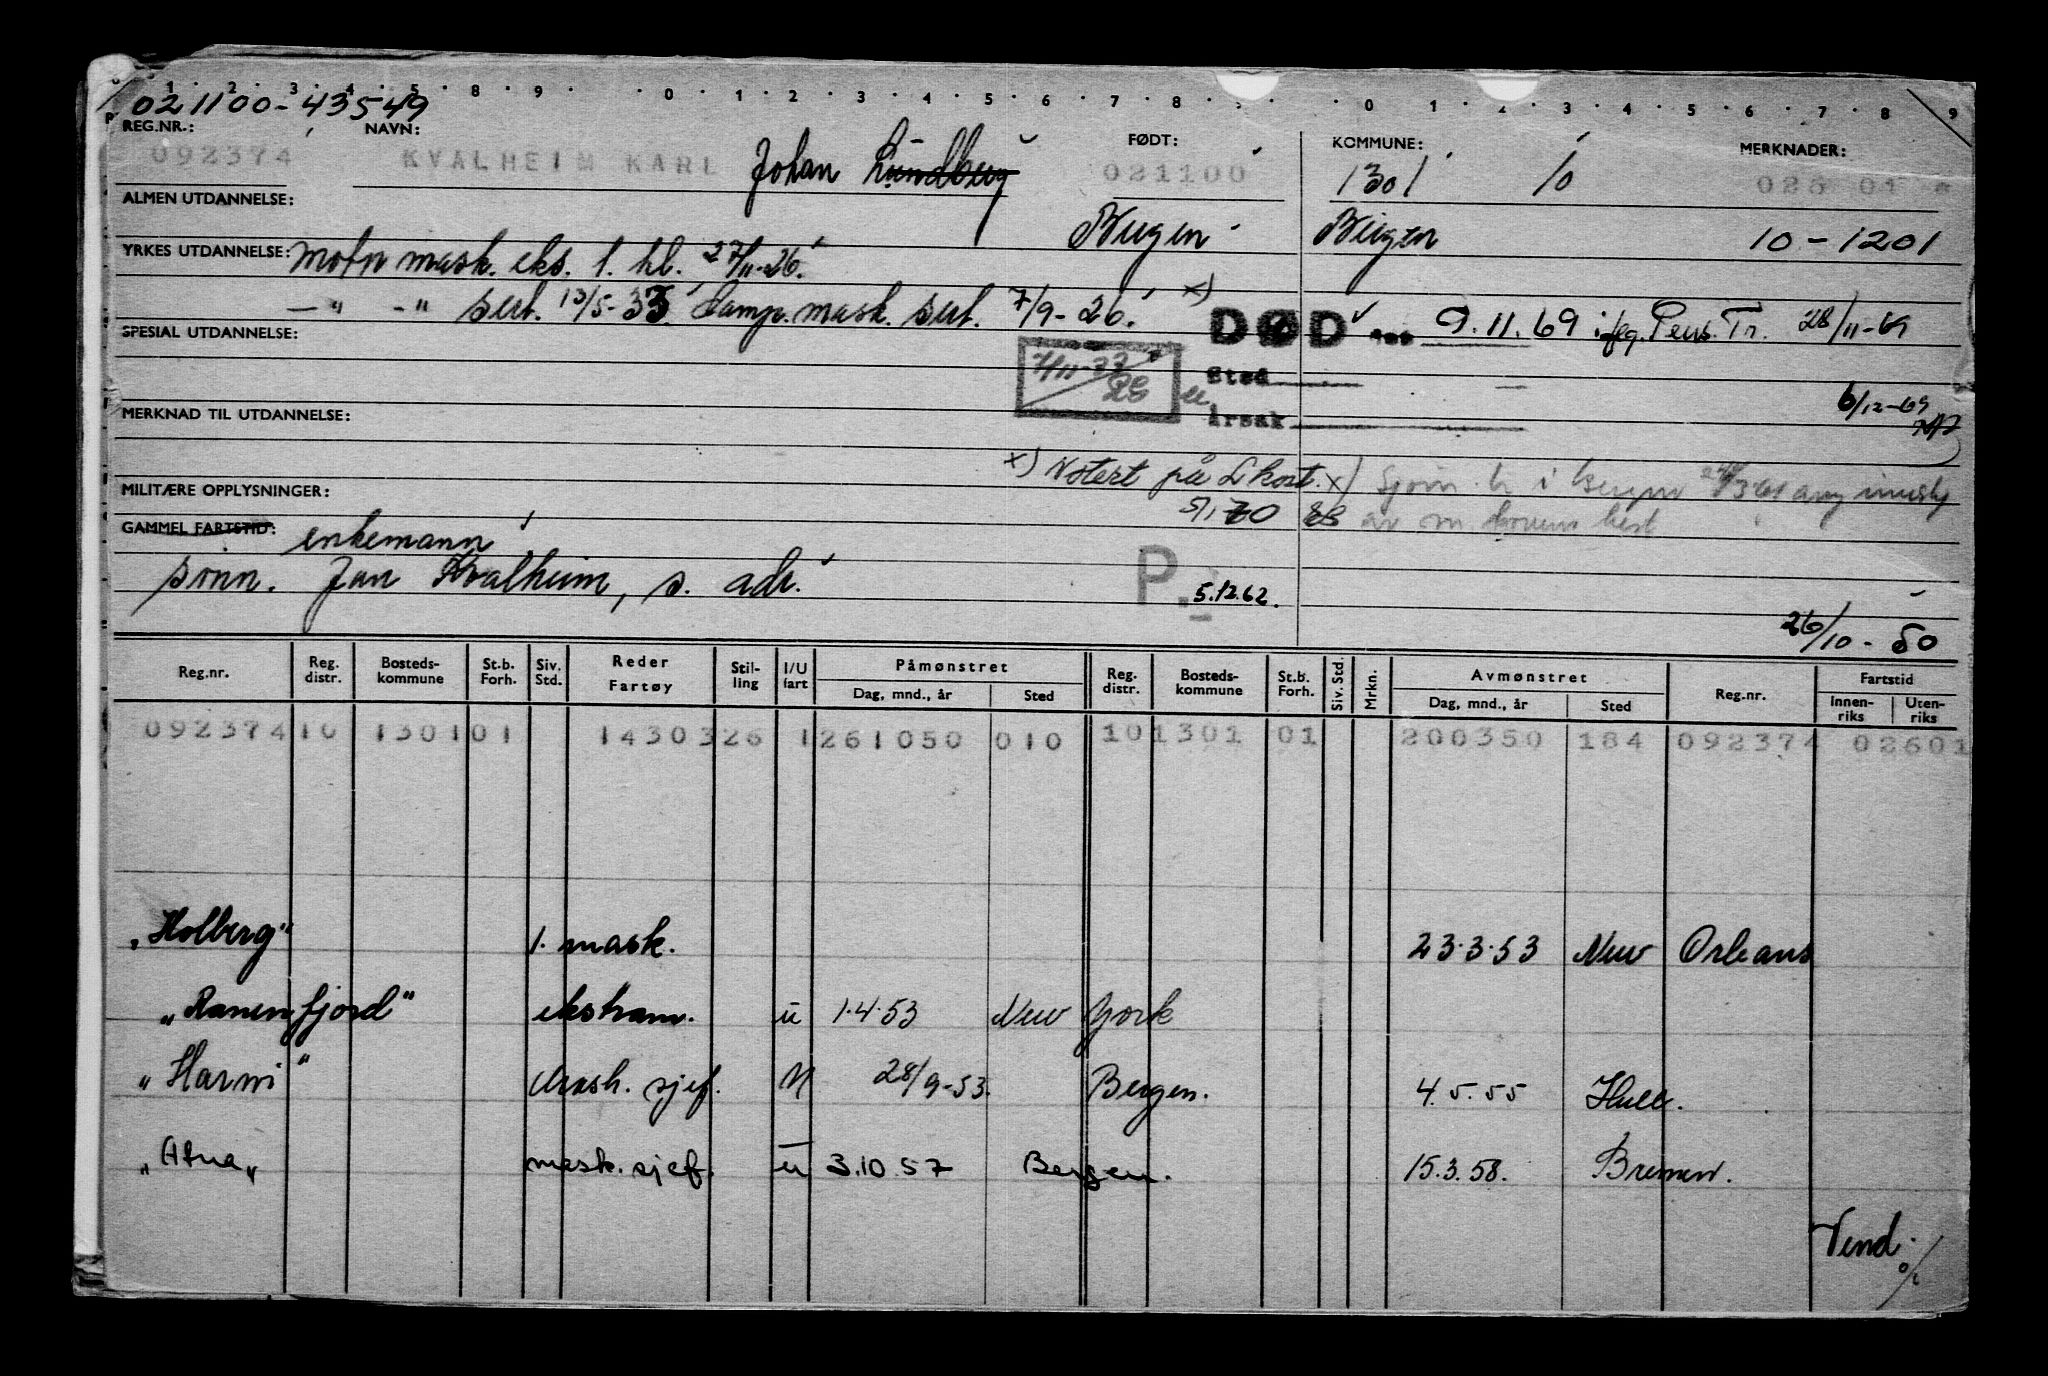 0 1 2 3 4 5 6 7 8 9 0 1 2 3 4 5 6 7 8 9 0 1 2 3 4 5 6 7 8 9
021100-43549
REG.NR.: NAVN: FØDT: KOMMUNE: MERKNADER:
092374 KVALHEIM KARL Johan Lundberg 021100 1301 10 026 01
ALMEN UTDANNELSE: Bergen Bergen 10-1201
YRKES UTDANNELSE: Motor mask. eks. 1. kl. 27/11-26.
—"— -" sert. 13/5-33. Damp. mask. sert. 7/9-26. x)
DØD 9.11.69 iføg. Pens. Tr. 28/11-69
SPESIAL UTDANNELSE:
Sted
6/12-69
MERKNAD TIL UTDANNELSE: Årsak
x) Notert på L kort. x) Sjøm. k i Bergen
MILITÆRE OPPLYSNINGER: 5/1 70
GAMMEL FARTSTID: enkemann
sønn. Jan Kvalheim, s. adr.
P. 5.12.62.
26/10-50
Reg.nr. Reg. distr. Bosteds-kommune St.b. Forh. Siv. Std. Reder Fartøy Stil-ling I/U fart Påmønstret Dag, mnd., år Sted Reg. distr. Bosteds-kommune St.b. Forh. Siv. Std. Mrkn. Avmønstret Dag, mnd., år Sted Reg.nr. Fartstid Innen-riks Uten-riks
092374 10 1301 01 1430326 1 261050 010 10 1301 01 200350 184 092374 02601
"Holberg" 1. mask. 23.3.53 New Orleans
"Ranenfjord" ekstram. u 1.4.53 New York
"Harwi" Mask. sjef. U 28/9-53. Bergen. 4.5.55 Hull.
"Atna" mask. sjef. u 3.10 57 Bergen. 15.3.58. Bremen.
Vend.